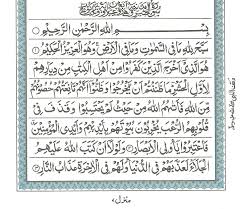 بِسْمِ اللهِ الرَّحْمٰنِ الرَّحِيْمِ
سَبَّحَ لِلّٰهِ مَا فِي السَّمٰوٰتِ وَمَا فِي الْاَرْضِ وَهُوَ الْعَزِيْزُ الْحَكِيْمُ ۝۱
هُوَ الَّذِيْٓ اَخْرَجَ الَّذِيْنَ كَفَرُوْا مِنْ اَهْلِ الْكِتٰبِ مِنْ دِيَارِهِمْ
لِاَوَّلِ الْحَشْرِ مَا ظَنَنْتُمْ اَنْ يَّخْرُجُوْا وَظَنُّوْٓا اَنَّهُمْ مَّانِعَتُهُمْ حُصُوْنُهُمْ
مِّنَ اللهِ فَاَتٰىهُمُ اللهُ مِنْ حَيْثُ لَمْ يَحْتَسِبُوْا وَقَذَفَ فِيْ
قُلُوْبِهِمُ الرُّعْبَ يُخْرِبُوْنَ بُيُوْتَهُمْ بِاَيْدِيْهِمْ وَاَيْدِي الْمُؤْمِنِيْنَ
فَاعْتَبِرُوْا يٰٓاُولِي الْاَبْصَارِ ۝۲ وَلَوْلَآ اَنْ كَتَبَ اللهُ عَلَيْهِمُ
الْجَلَآءَ لَعَذَّبَهُمْ فِي الدُّنْيَا وَلَهُمْ فِي الْاٰخِرَةِ عَذَابُ النَّارِ ۝۳
منزل ٧